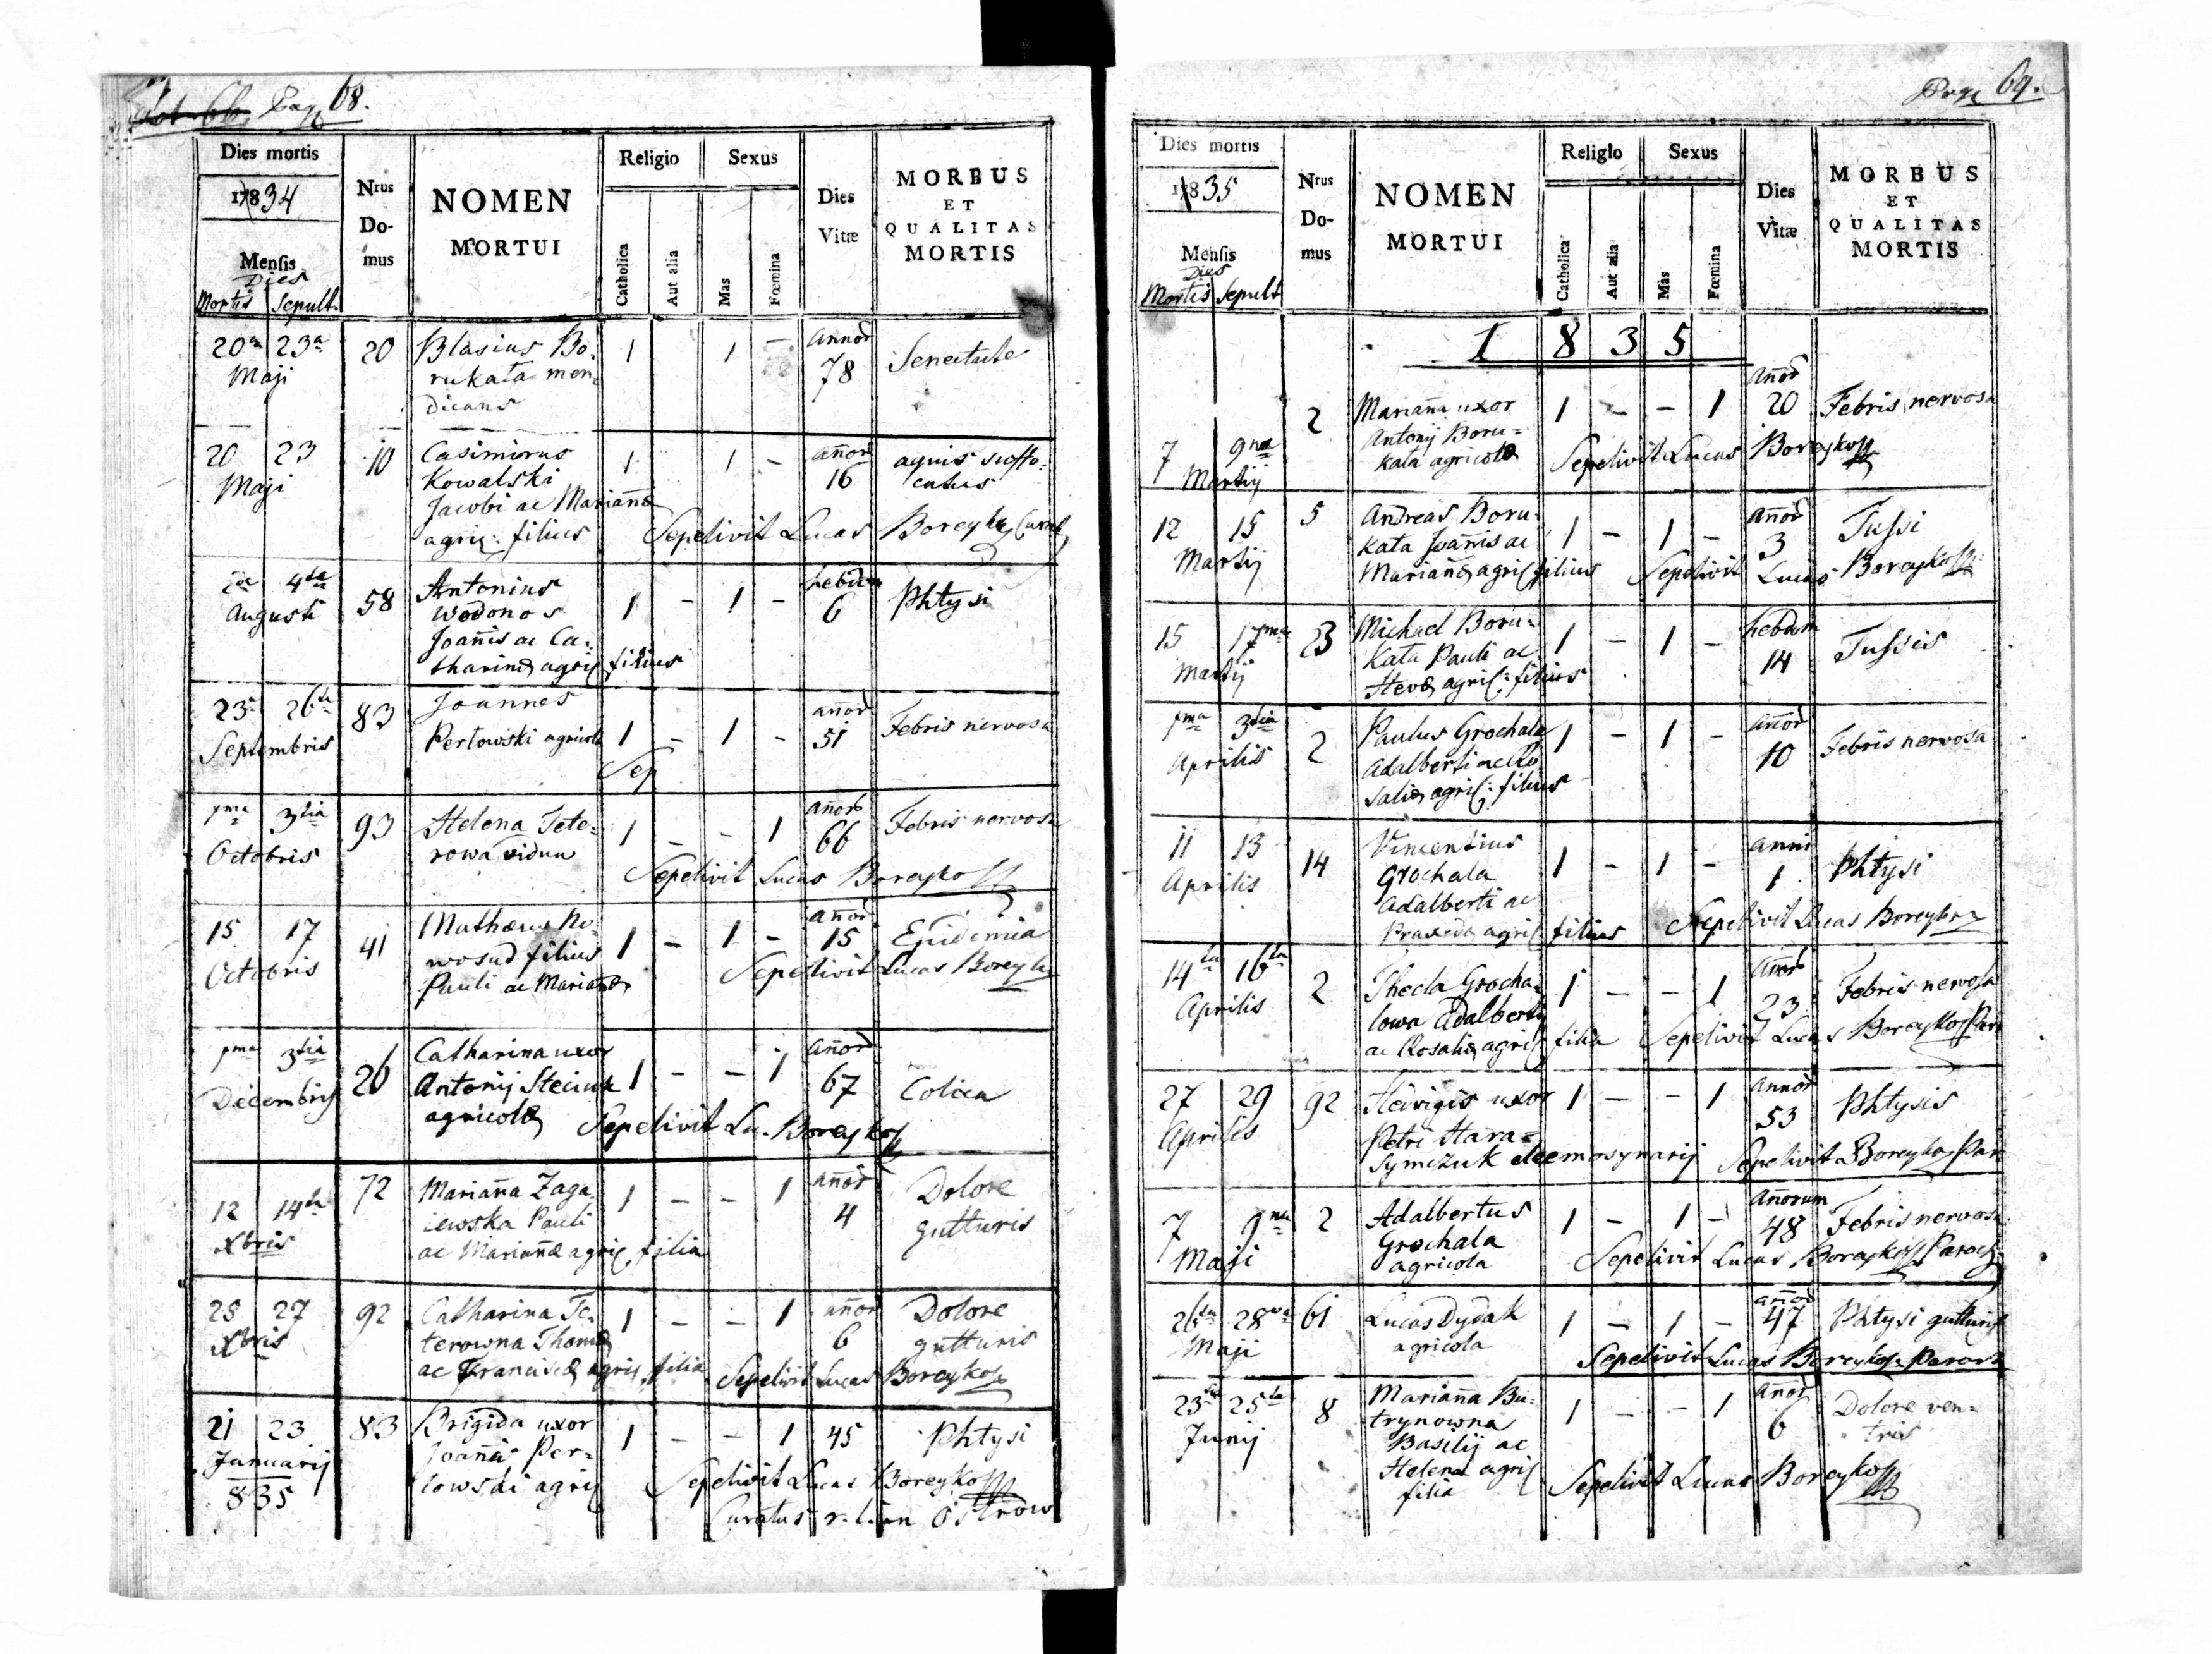 Pag 68.
Dies mortis
1834
Mensis
Dies
Mortis Sepult.
Nrus
Do-
mus
NOMEN
MORTUI
Religio
Catholica
Aut alia
Sexus
Mas
Fœmina
Dies
Vitæ
MORBUS
ET
QUALITAS
MORTIS
20a 23a 20 Blasius Bo- 1 1 - annor
Maji rukata men= 78 Senectute
dicans
20 23 10 Casimirus 1 1 - añor aquis suffo=
Maji Kowalski 16 catus
Jacobi ac Mariañæ
agric: filius Sepelivit Lucas Boreyko
4ta 58 Antonius 1 - 1 - hebdom Phtysi
Augusti Wodonos 6
Joañis ac Ca-
tharinæ agric filius
23a 26ta 83 Joannes añor
Septembris Perlowski agricola 1 - 1 - 51 Febris nervosa
Sep
pma 3tia 93 Helena Tete= 1 - - 1 añor Febris nervosa
Octobris rowa vidua 66
Sepelivit Lucas Boreyko
15 17 41 Mathæus No- 1 - 1 - añor Epidemia
Octobris wosad filius 15
Pauli ac Mariañæ Sepelivit Lucas Boreyko
pma 3tia 26 Catharina uxor 1 - - 1 añor
Decembris Antonij Steciuk 67 Colica
agricolæ Sepelivit Lu. Boreyko
12 14ta 72 Mariañа Zaga- 1 - - 1 añor Dolore
Xbris iewska Pauli 4 gutturis
ac Mariañæ agric filia
25 27 92 Catharina Te- 1 - - 1 añor Dolore
Xbris terowna Thomæ 6 gutturis
ac Franciscæ agric filia Sepelivit Lucas Boreyko
21 23 83 Brigida uxor 1 - - 1 45 Phtysi
Januarij Joañis Per=
835 lowski agric Sepelivit Lucas Boreyko
Curatus r. l. in Ostrow
Page 69.
Dies mortis
1835
Mensis
Dies
Mortis Sepult
Nrus
Do-
mus
NOMEN
MORTUI
Religio
Catholica
Aut alia
Sexus
Mas
Fœmina
Dies
Vitæ
MORBUS
ET
QUALITAS
MORTIS
1 8 3 5
2 Mariaña uxor 1 - - 1 añor 20 Febris nervosa
7 9na Antonij Boru=
Martij kata agricolæ Sepelivit Lucas Boreyko
12 15 5 Andreas Boru- 1 - 1 - añor Tussi
Martij kata Joañis ac 3
Mariañæ agric filius Sepelivit Lucas Boreyko
15 17ma 23 Michael Boru= 1 - 1 - hebdom Tussis
Martij kata Pauli ac 14
Hevæ agric: filius
pma 3tia 2 Paulus Grochala 1 - 1 - añor Febris nervosa
Aprilis Adalberti ac Ro 10
saliæ agric: filius
11 13 14 Vincentius 1 - 1 - anni Phtysi
Aprilis Grochala 1
Adalberti ac
Praxedæ agric. filius Sepelivit Lucas Boreyko
14ta 16ta 2 Thecla Grocha= 1 - - 1 añor Febris nervosa
Aprilis lowa Adalberti 23
ac Rosaliæ agric filia Sepelivit Lucas Boreyko Par
27 29 92 Hedvigis uxor 1 - - 1 annor Phtysis
Aprilis Petri Hara= 53
symczuk eleemosynarij Sepelivit L Boreyko Par
7 9na 2 Adalbertus 1 - 1 - añorum Febris nervosa
Maji Grochala 48
agricola Sepelivit Lucas Boreyko Paroch
26ta 28va 61 Lucas Dydak 1 - 1 - añor 47 Phtysi gutturis
Maji agricola
Sepelivit Lucas Boreyko Paroch
23 25ta 8 Mariaña Bu- 1 - - 1 añor Dolore ven=
Junij trynowna 6 tris
Basilij ac
Helenæ agric Sepelivit Lucas Boreyko
filia